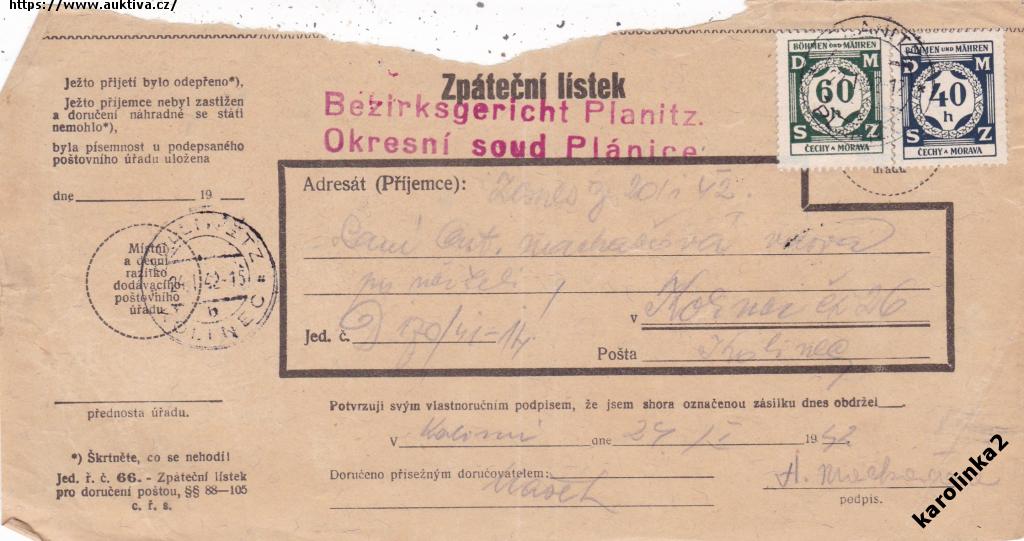 https://www.auktiva.cz/
Ježto přijetí bylo odepřeno*),
Ježto příjemce nebyl zastižen
a doručení náhradné se státi
nemohlo*),
byla písemnost u podepsaného
poštovního úřadu uložena
dne 19
Místní
a denní
razítko
dodávacího
poštovního
úřadu
KOLINETZ
24.I.42-15
b
KOLINEC
přednosta úřadu.
*) Škrtněte, co se nehodí!
Jed. ř. č. 66. - Zpáteční lístek
pro doručení poštou, §§ 88—105
c. ř. s.
Zpáteční lístek
Bezirksgericht Planitz.
Okresní soud Plánice
BÖHMEN UND MÄHREN
D M
60
h
S Z
ČECHY A MORAVA
BÖHMEN UND MÄHREN
D M
40
h
S Z
ČECHY A MORAVA
úřadu
Adresát (Příjemce):
20/1 42.
Paní Ant. Machačová vdova
v
Jed. č. D 170/41-14
Pošta Kolinec
Potvrzuji svým vlastnoručním podpisem, že jsem shora označenou zásilku dnes obdržel
V Kolinci dne 24/I 1942
Doručeno přísežným doručovatelem:
podpis.
karolinka2